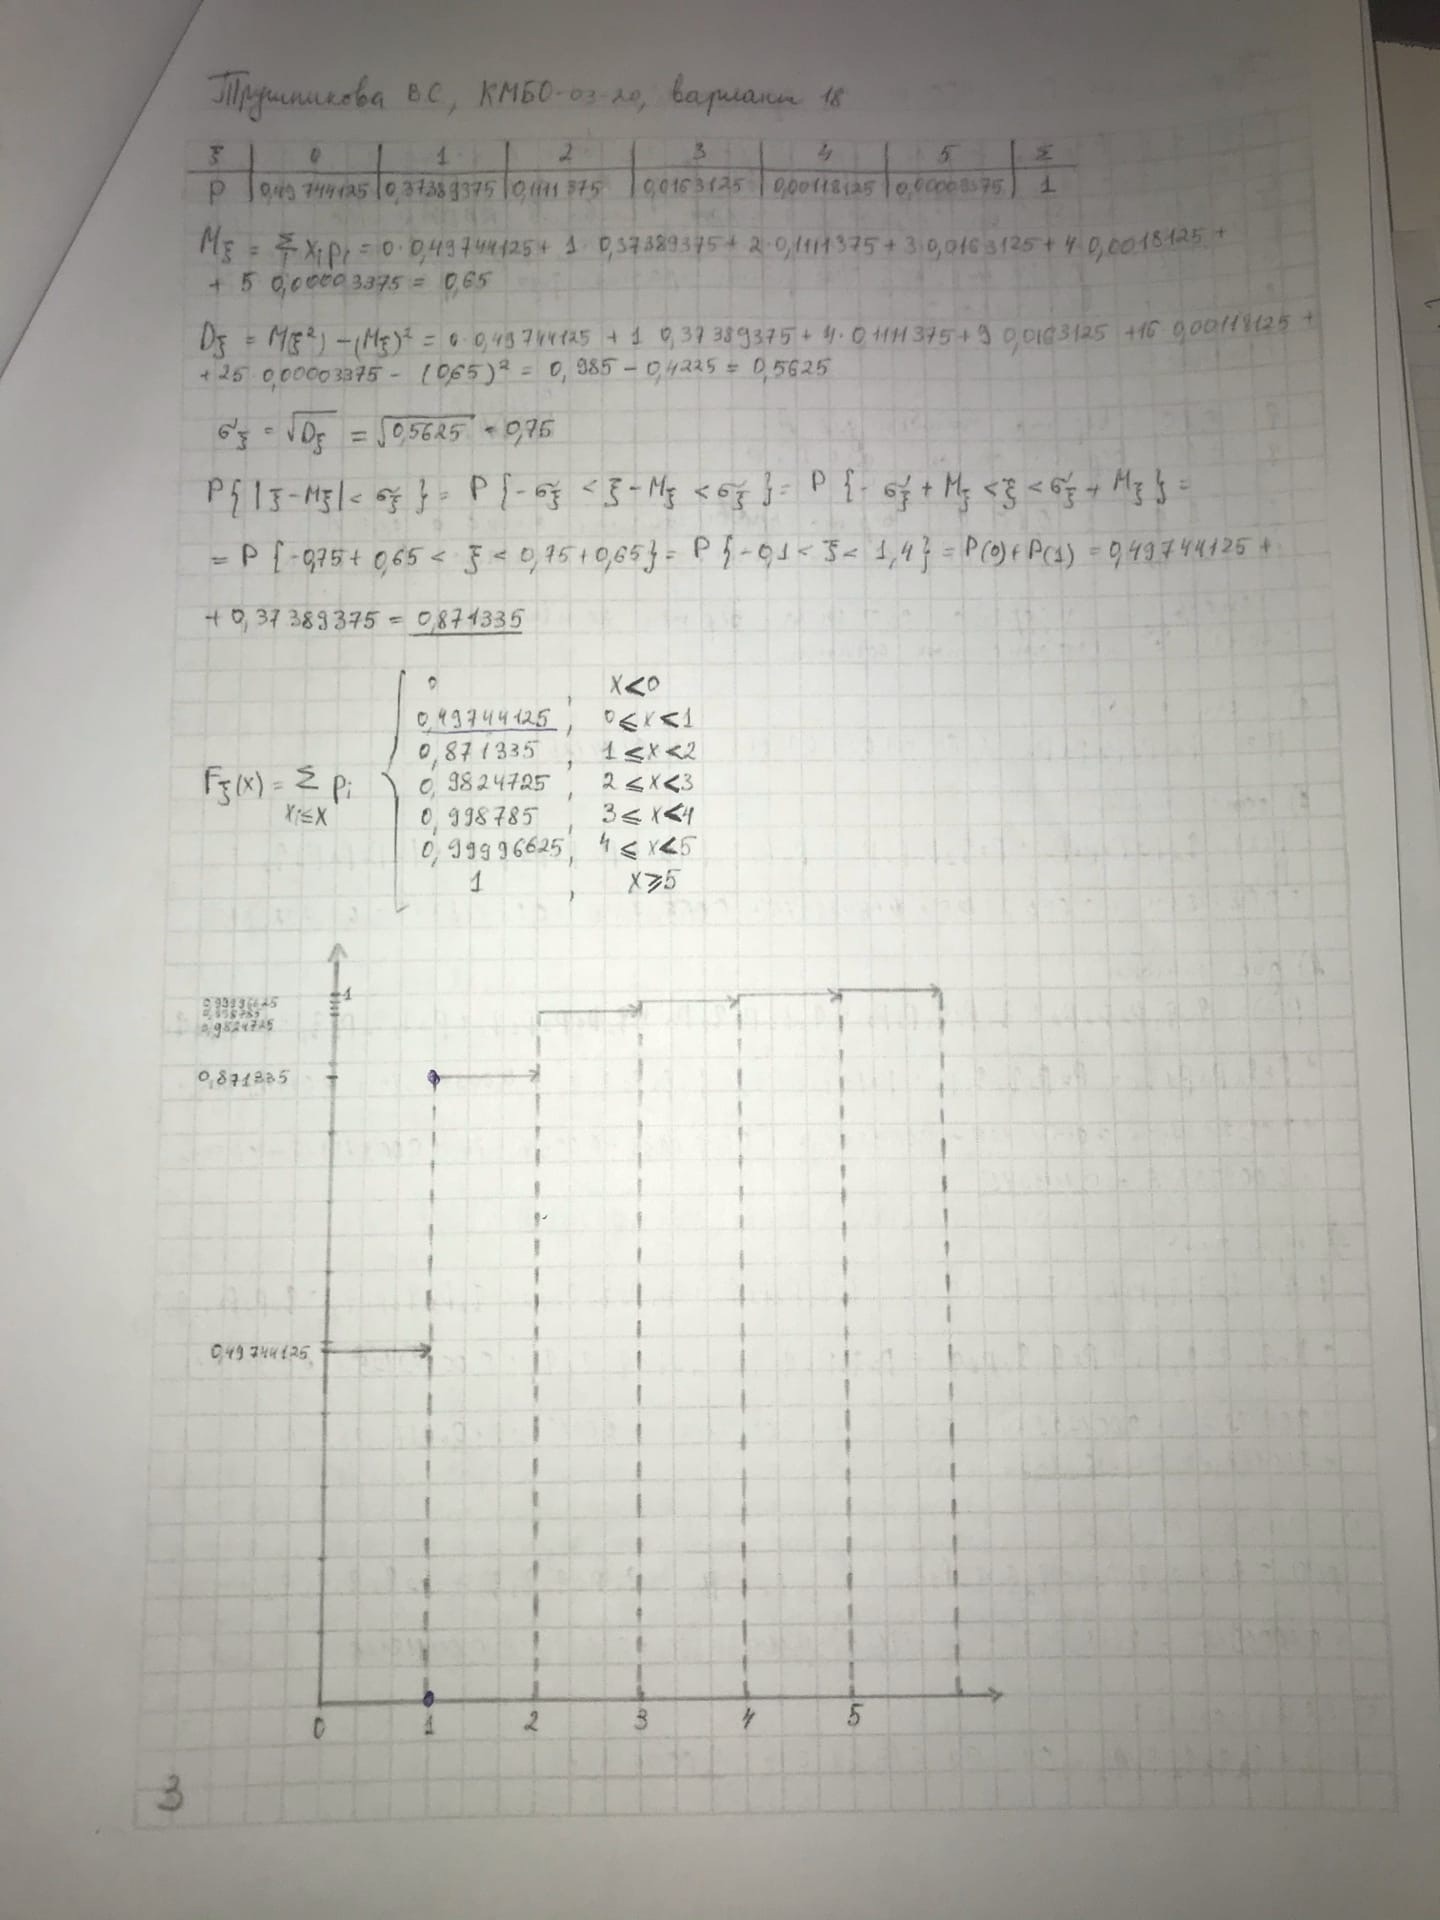 Трушникова В.С, КМБО-03-20, вариант 18
ξ | 0 | 1 | 2 | 3 | 4 | 5 | Σ
P | 0,49744125 | 0,37389375 | 0,1111375 | 0,0163125 | 0,00118125 | 0,00003375 | 1
Mξ = Σ xᵢpᵢ = 0·0,49744125 + 1·0,37389375 + 2·0,1111375 + 3·0,0163125 + 4·0,0018125 +
+ 5 0,00003375 = 0,65
Dξ = M(ξ²) - (Mξ)² = 0·0,49744125 + 1 0,37389375 + 4·0,1111375 + 9 0,0163125 + 16 0,00118125 +
+ 25 0,00003375 - (0,65)² = 0,985 - 0,4225 = 0,5625
σξ = √Dξ = √0,5625 = 0,75
P{|ξ-Mξ| < σξ} = P{-σξ < ξ-Mξ < σξ} = P{-σξ + Mξ < ξ < σξ + Mξ} =
= P{-0,75 + 0,65 < ξ < 0,75 + 0,65} = P{-0,1 < ξ < 1,4} = P(0) + P(1) = 0,49744125 +
+ 0,37389375 = 0,871335
0 , x<0
0,49744125 , 0⩽x<1
0,871335 , 1⩽x<2
Fξ(x) = Σ pᵢ 0,9824725 , 2⩽x<3
xᵢ≤x 0,998785 , 3⩽x<4
0,99996625, 4⩽x<5
1 , x⩾5
1
0,99996625
0,998785
0,9824725
0,871335
0,49744125
0 1 2 3 4 5
3